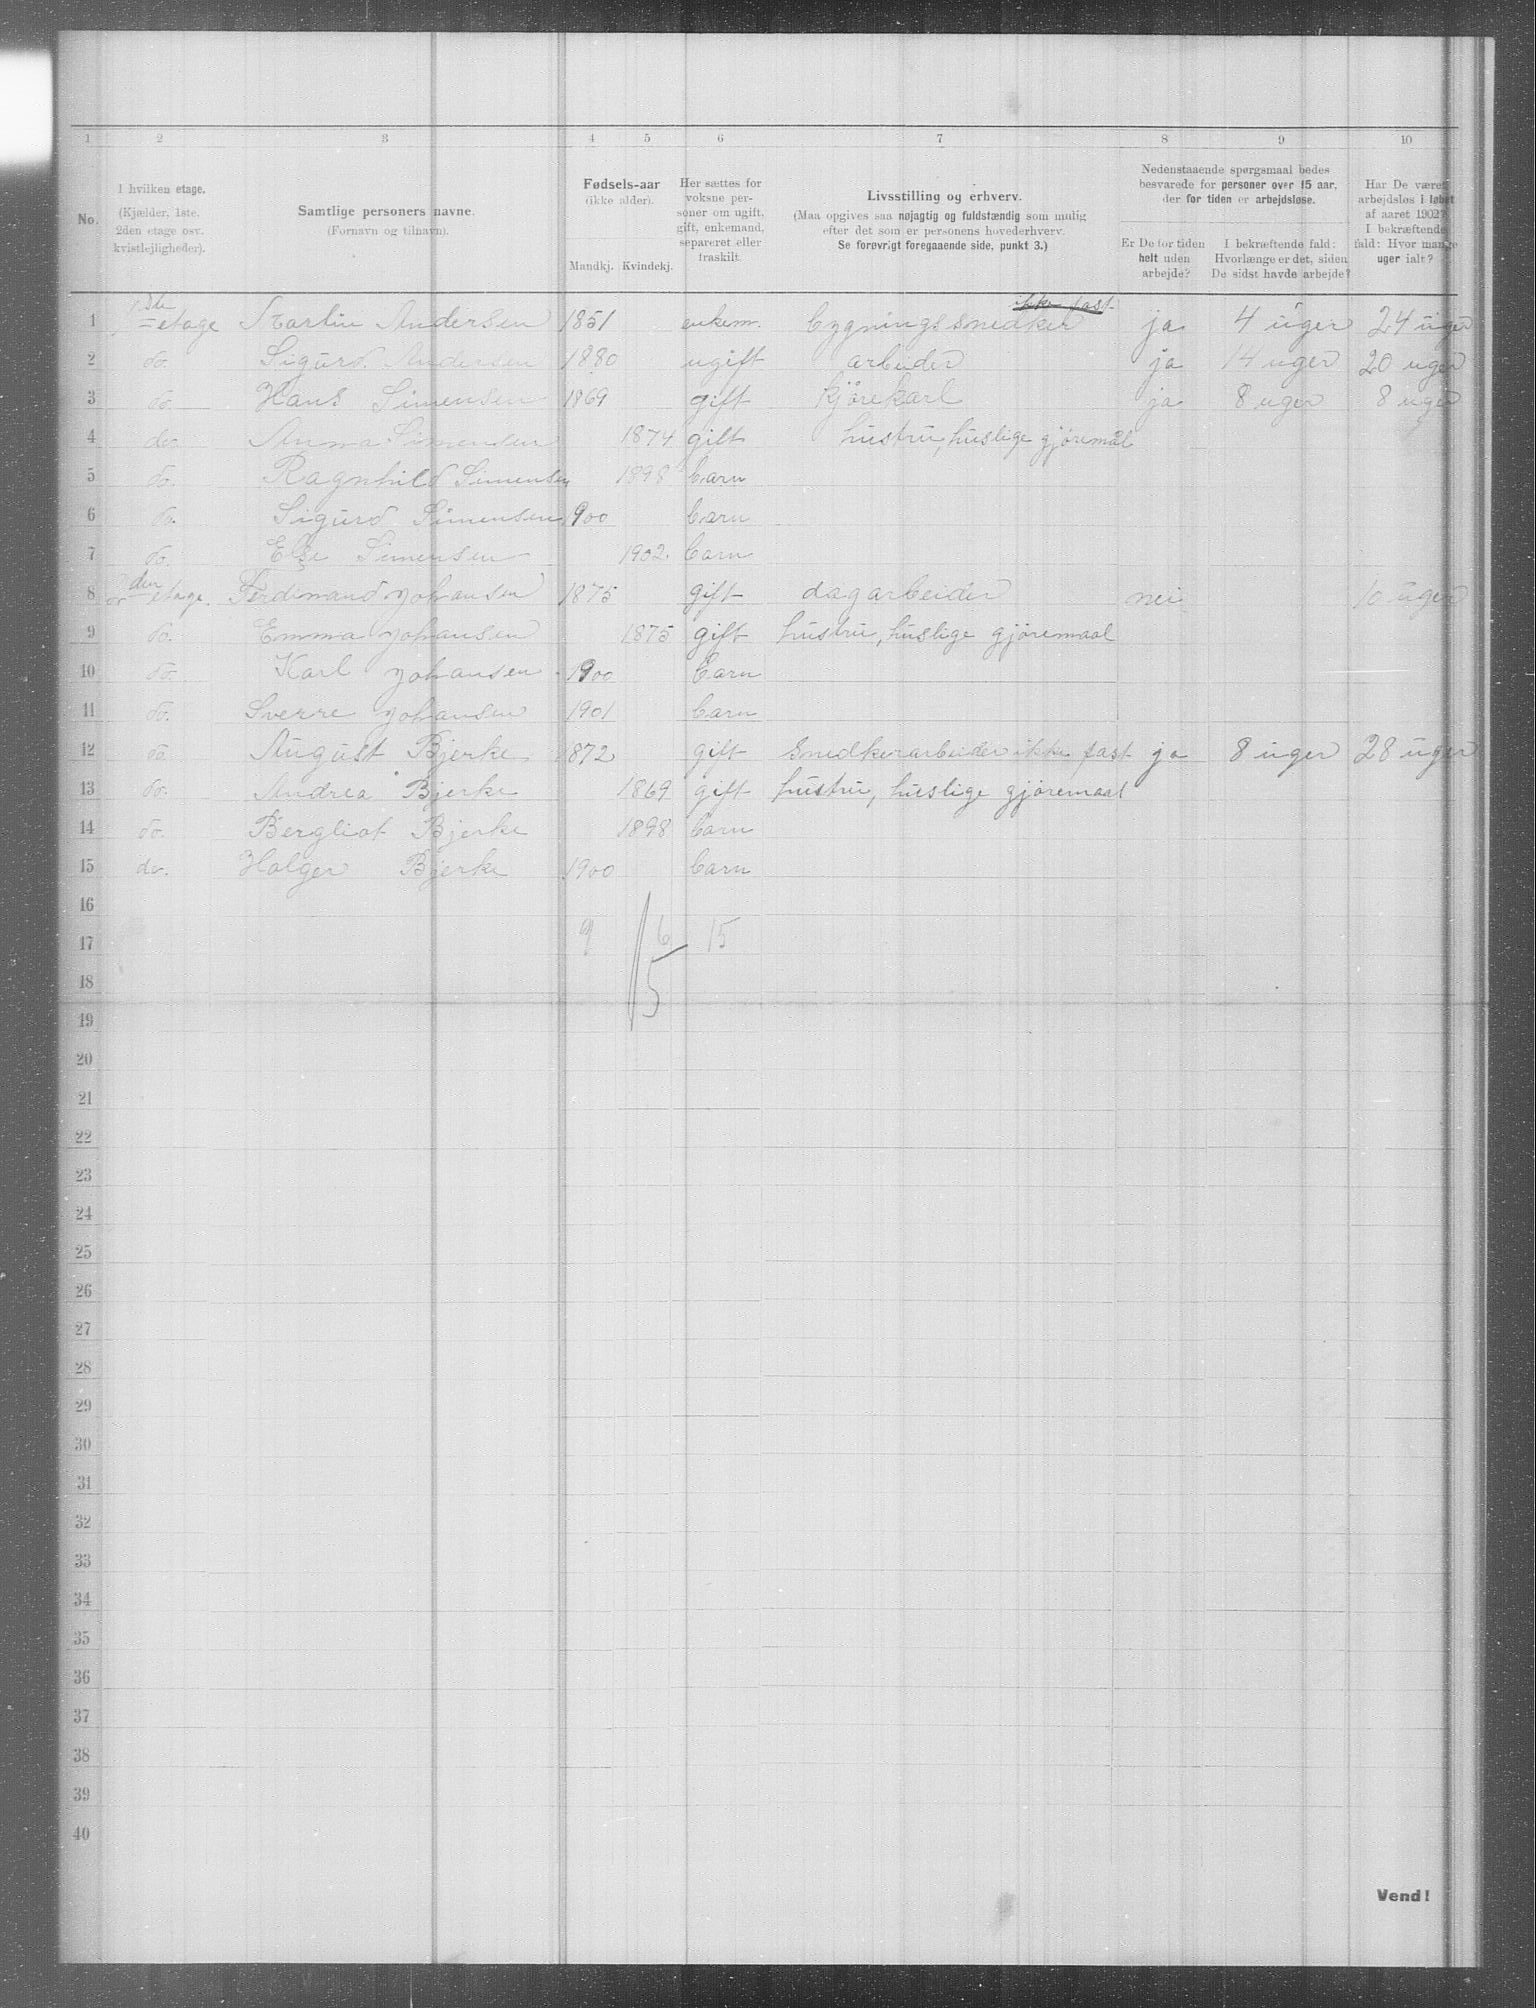 1 2 3 4 5 6 7 8 9 10
No.
I hvilken etage.
(Kjælder, 1ste.
2den etage osv.
kvistlejligheder).
Samtlige personers navne.
(Fornavn og tilnavn).
Fødsels-aar
(ikke alder).
Mandkj. Kvindekj.
Her sættes for
voksne per-
soner om ugift,
gift, enkemand,
separeret eller
fraskilt.
Livsstilling og erhverv.
(Maa opgives saa nøjagtig og fuldstændig som mulig
efter det som er personens hovederhverv.
Se forøvrigt foregaaende side, punkt 3.)
Nedenstaaende spørgsmaal bedes
besvarede for personer over 15 aar,
der for tiden er arbejdsløse.
Er De for tiden
helt uden
arbejde?
I bekræftende fald:
Hvorlænge er det, siden
De sidst havde arbejde?
Har De været
arbejdsløs i løbet
af aaret 1902?
I bekræftende
fald: Hvor mange
uger ialt?
1 1ste etage Martin Andersen 1851 enkem. bygningssnedker ikke fast ja 4 uger 24 uger
2 do. Sigurd Andersen 1880 ugift arbeider ja 14 uger 20 uger
3 do. Hans Simensen 1869 gift kjørekarl ja 8 uger 8 uger
4 do. Anna Simensen 1874 gift hustru, huslige gjøremål
5 do. Ragnhild Simensen 1898 barn
6 do. Sigurd Simensen 1900 barn
7 do. Else Simensen 1902. barn
8 2den etage. Ferdinand Johansen 1875 gift dagarbeider nei 10 uger
9 do. Emma Johansen 1875 gift hustru, huslige gjøremaal
10 do. Karl Johansen 1900 barn
11 do. Sverre Johansen 1901 barn
12 do August Bjerke 1872 gift Snedkerarbeider ikke fast ja 8 uger 28 uger
13 do. Andrea Bjerke 1869 gift hustru, huslige gjøremaal
14 do. Bergliot Bjerke 1898 barn
15 do. Holger Bjerke 1900 barn
16
17 9 6 15
18 15
19
20
21
22
23
24
25
26
27
28
29
30
31
32
33
34
35
36
37
38
39
40
Vend!